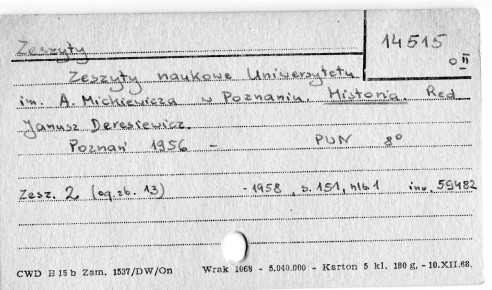 Zeszyty
14515
o II
Zeszyty naukowe Uniwersytetu
im. A. Mickiewicza w Poznaniu. Historia. Red
Janusz Deresiewicz.
Poznań 1956 - PWN 8°
Zesz. 2 (og. zb. 13) - 1958, s. 151, nlb 1 inw. 59482
CWD B 15 b Zam. 1537/DW/On Wrak 1068 - 5.040.000 - Karton 5 kl. 180 g. - 10.XII.68.